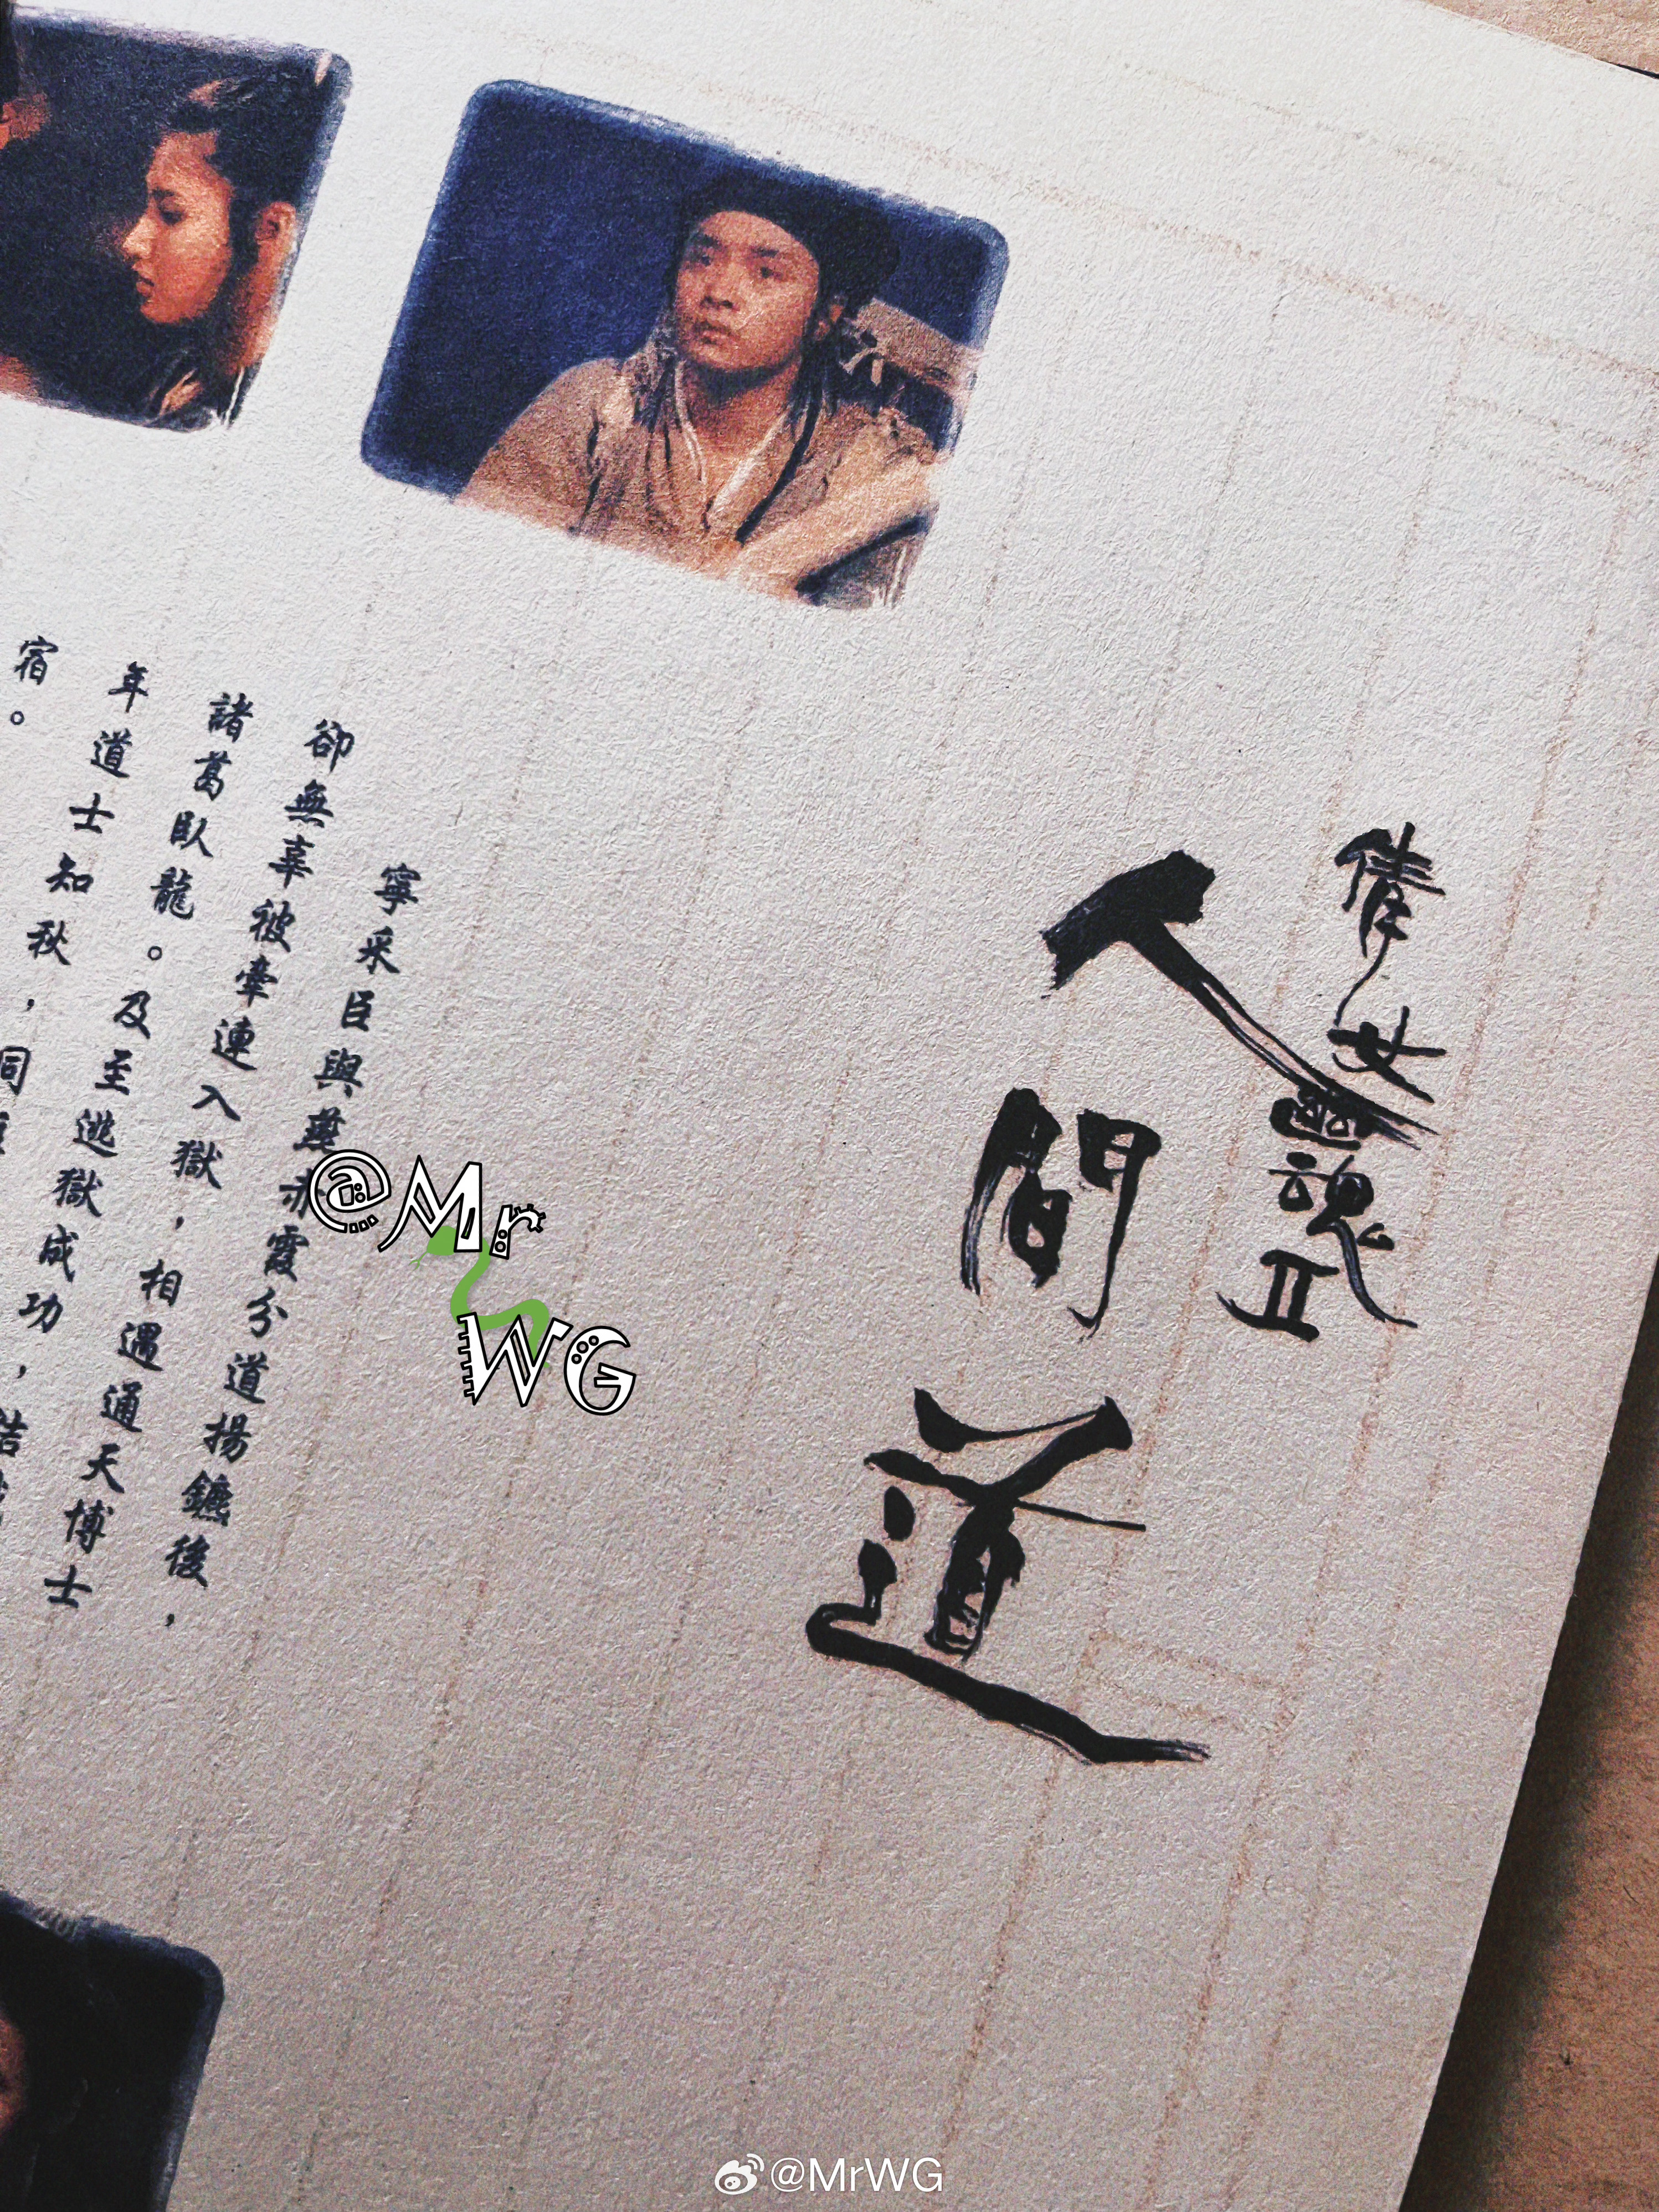 倩女幽魂II
人間道
寧采臣與燕赤霞分道揚鑣後，
卻無辜被牽連入獄，相遇通天博士
諸葛臥龍。及至逃獄成功，結
年道士知秋，同
宿。
@Mr
WG
@MrWG